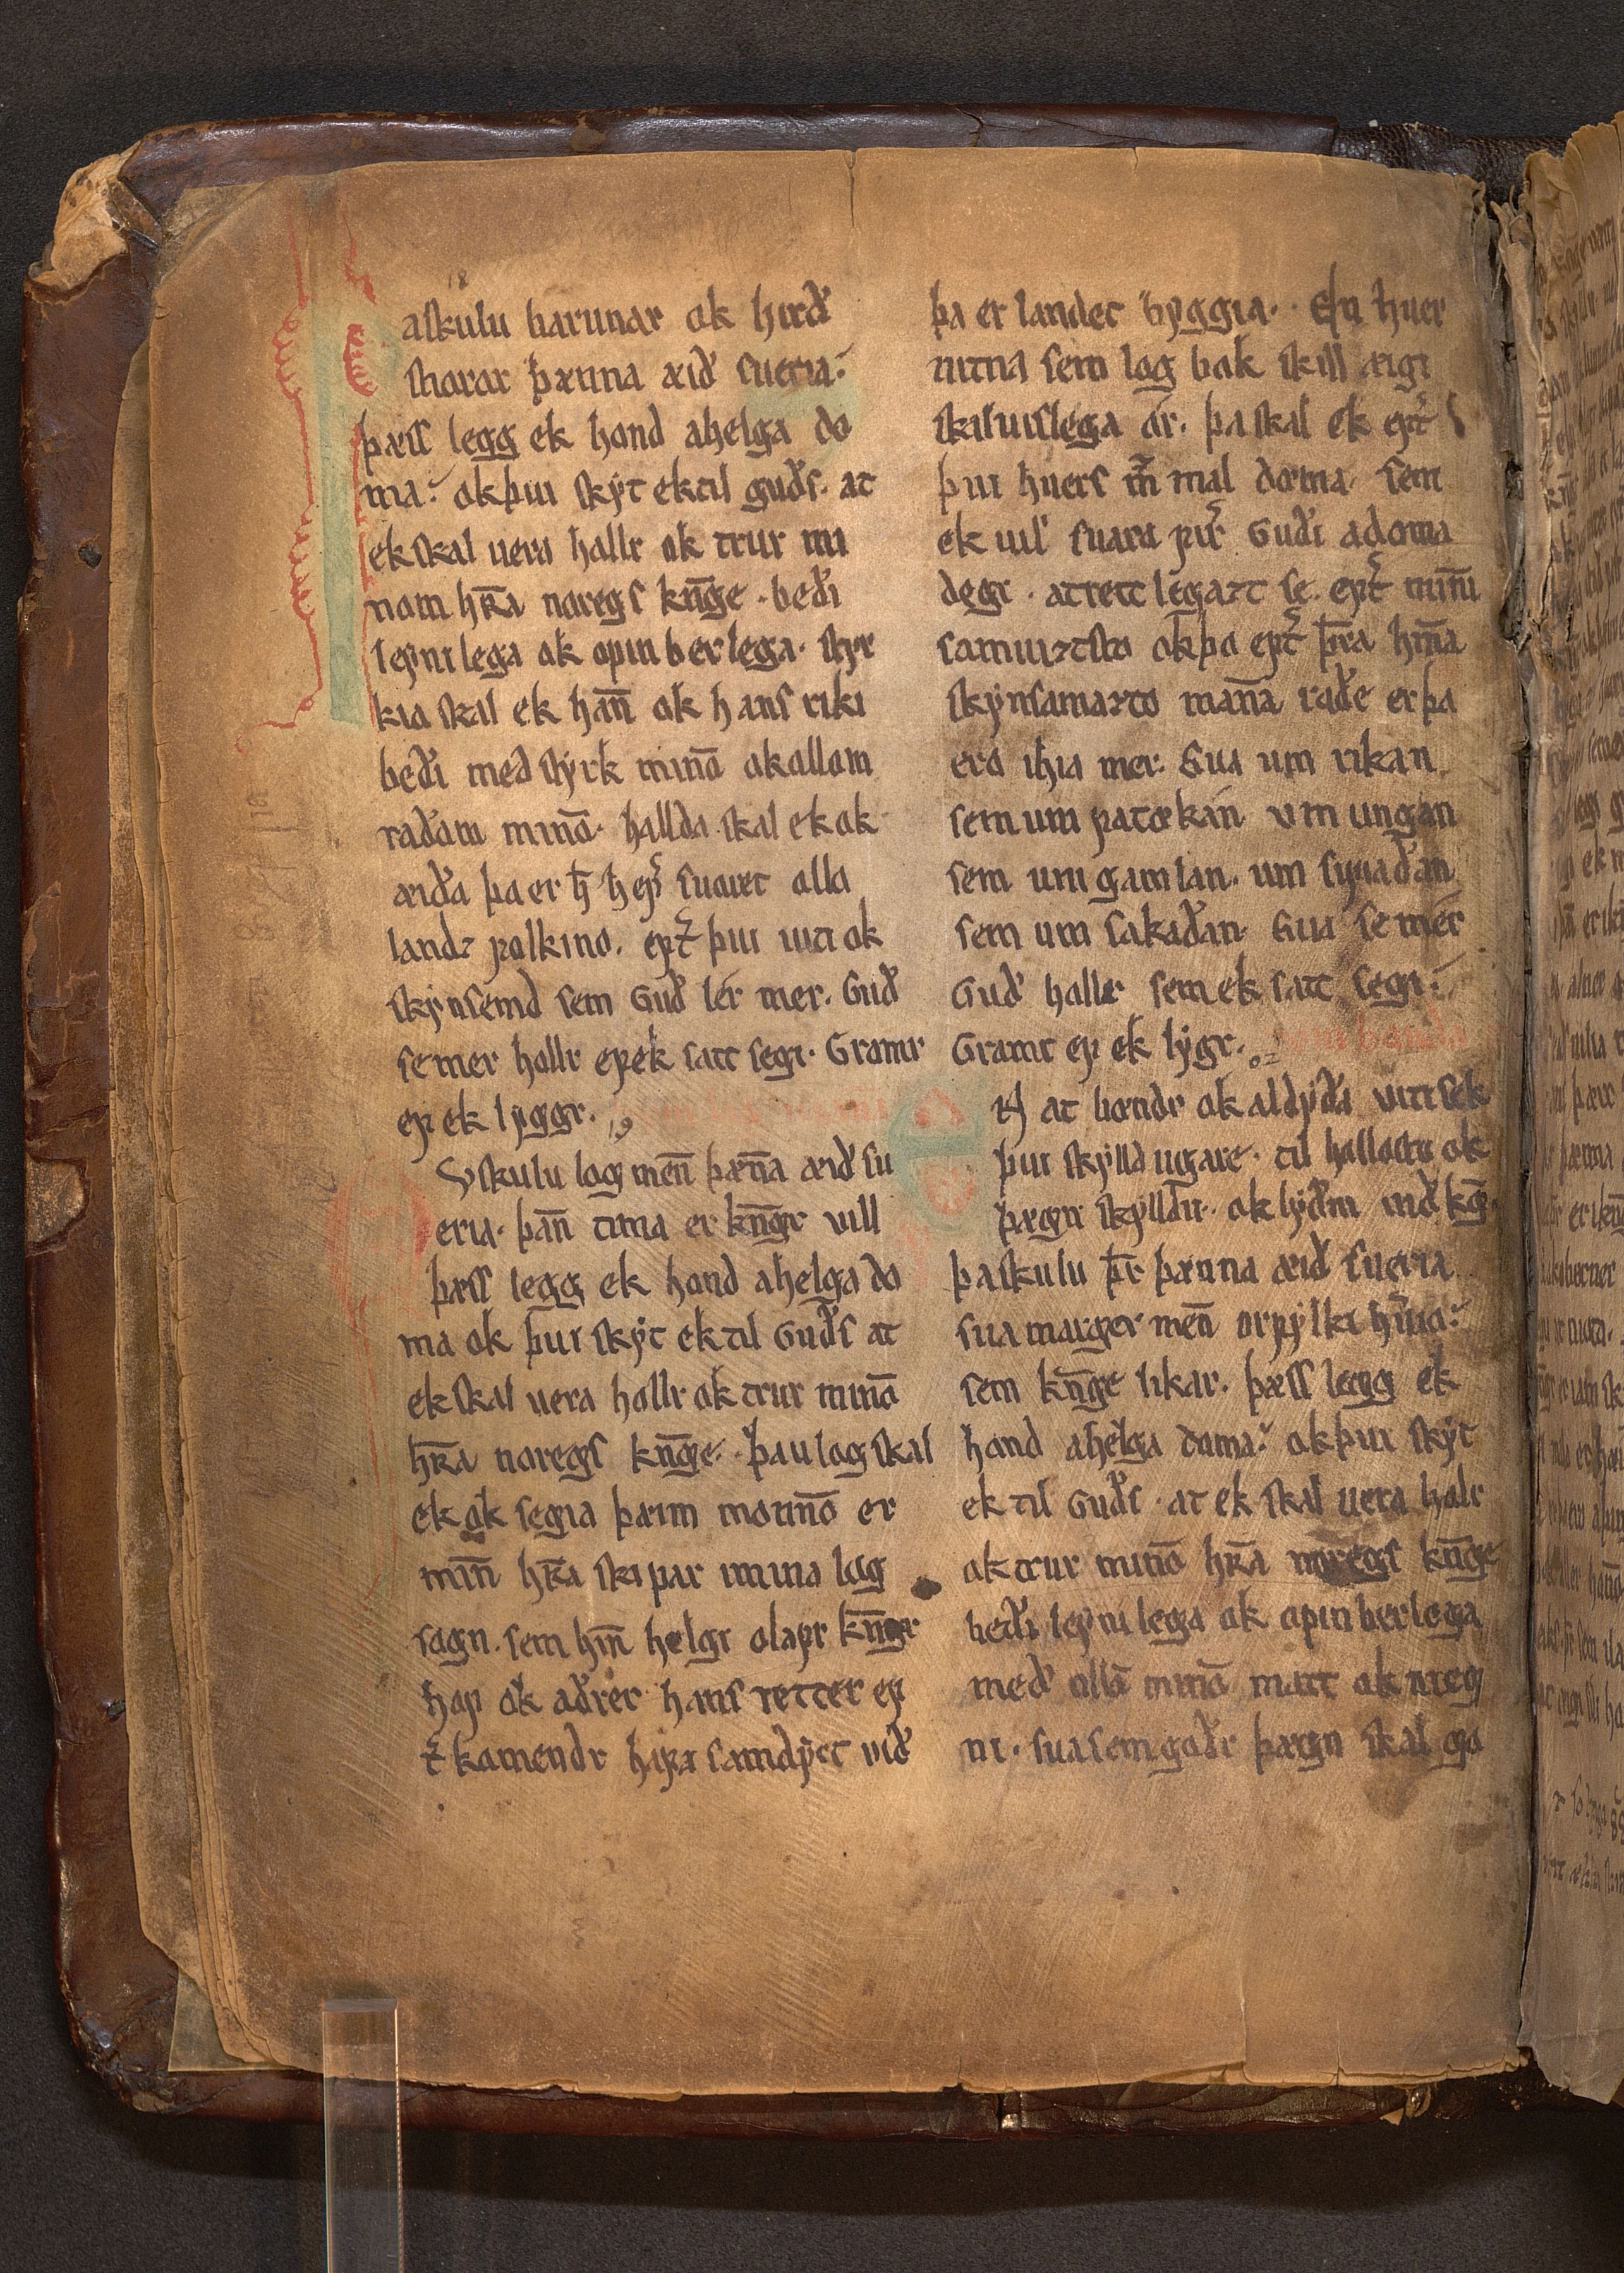 Þaskulu barunar ok hird
stiorar þænna æið sueria.
þæss legg ek hond ahelga do
ma. okþui skýt ektil guðs. at
ekskal uera hollr ok trur mi
nom hrͣa noregs kn̄ge. beði
leynilega ok opinberlega. styr
kia skal ek han̄ ok hans riki
beði med styrk minō okallom
raðom minō. hallda skal ekok
æiða þa er h̄ hefͥr suaret allo
landz folkino. eptͥ þui uiti ok
skynsemd sem Guð lér mer. Guð
semer hollr efek satt segi. Gramr
ef ek lyggr.
Sv skulu logmen̄ þæn̄a æið su
eria. þan̄ tima er kn̄gr vill
þæss legg ek hond ahelga do
ma ok þui skýt ektil Guðs at
ekskal uera hollr ok trur minō
hrͣa noregs kn̄ge. þaulog skal
ek ok segia þæim monnō er
min̄ hrͣa skipar imina log
sogn. sem hin̄ helgi olafr kn̄gr
hof ok aðrer hans retter ep
tͥ komendr hafa samdyct við
þa er landet byggia. En huer
uitna sem log bok skill æigi
skiluislega ór. þa skal ek eptͥ
þui huers m̄ mal dœma sem
ek uil suara firͥ Guði adoma
degi. atrett legazt se. eptͥ min̄i
samuizsko okþo eptͥ þr̄a hin̄a
skynsamazto man̄a raðe erþa
ero ihia mer. Sua um rikan
sem um fatœkan vm ungan
sem um gamlan. um synaðan
sem um sakaðan. Sua se mer
Guð hollr sem ek satt segi.
Gramr ef ek lýgr.
En at bœndr ok aldyða vitisek
þui skylldugare. til hollosto ok
þægn skylldu. ok lyðni við kḡ.
þaskulu þr̄ þænna æið sueria
sua marger men̄ orfylki hueriō.
sem kn̄ge likar. þæss legg ek
hond ahelga doma. okþui skýt
ek til Guðs. at ek skal uera holr
ok trur minō hrͣa noregs kn̄ge
beði leynilega ok opinberlega
með ollō minō matt ok meg
ni. suasem goðr þægn skal go